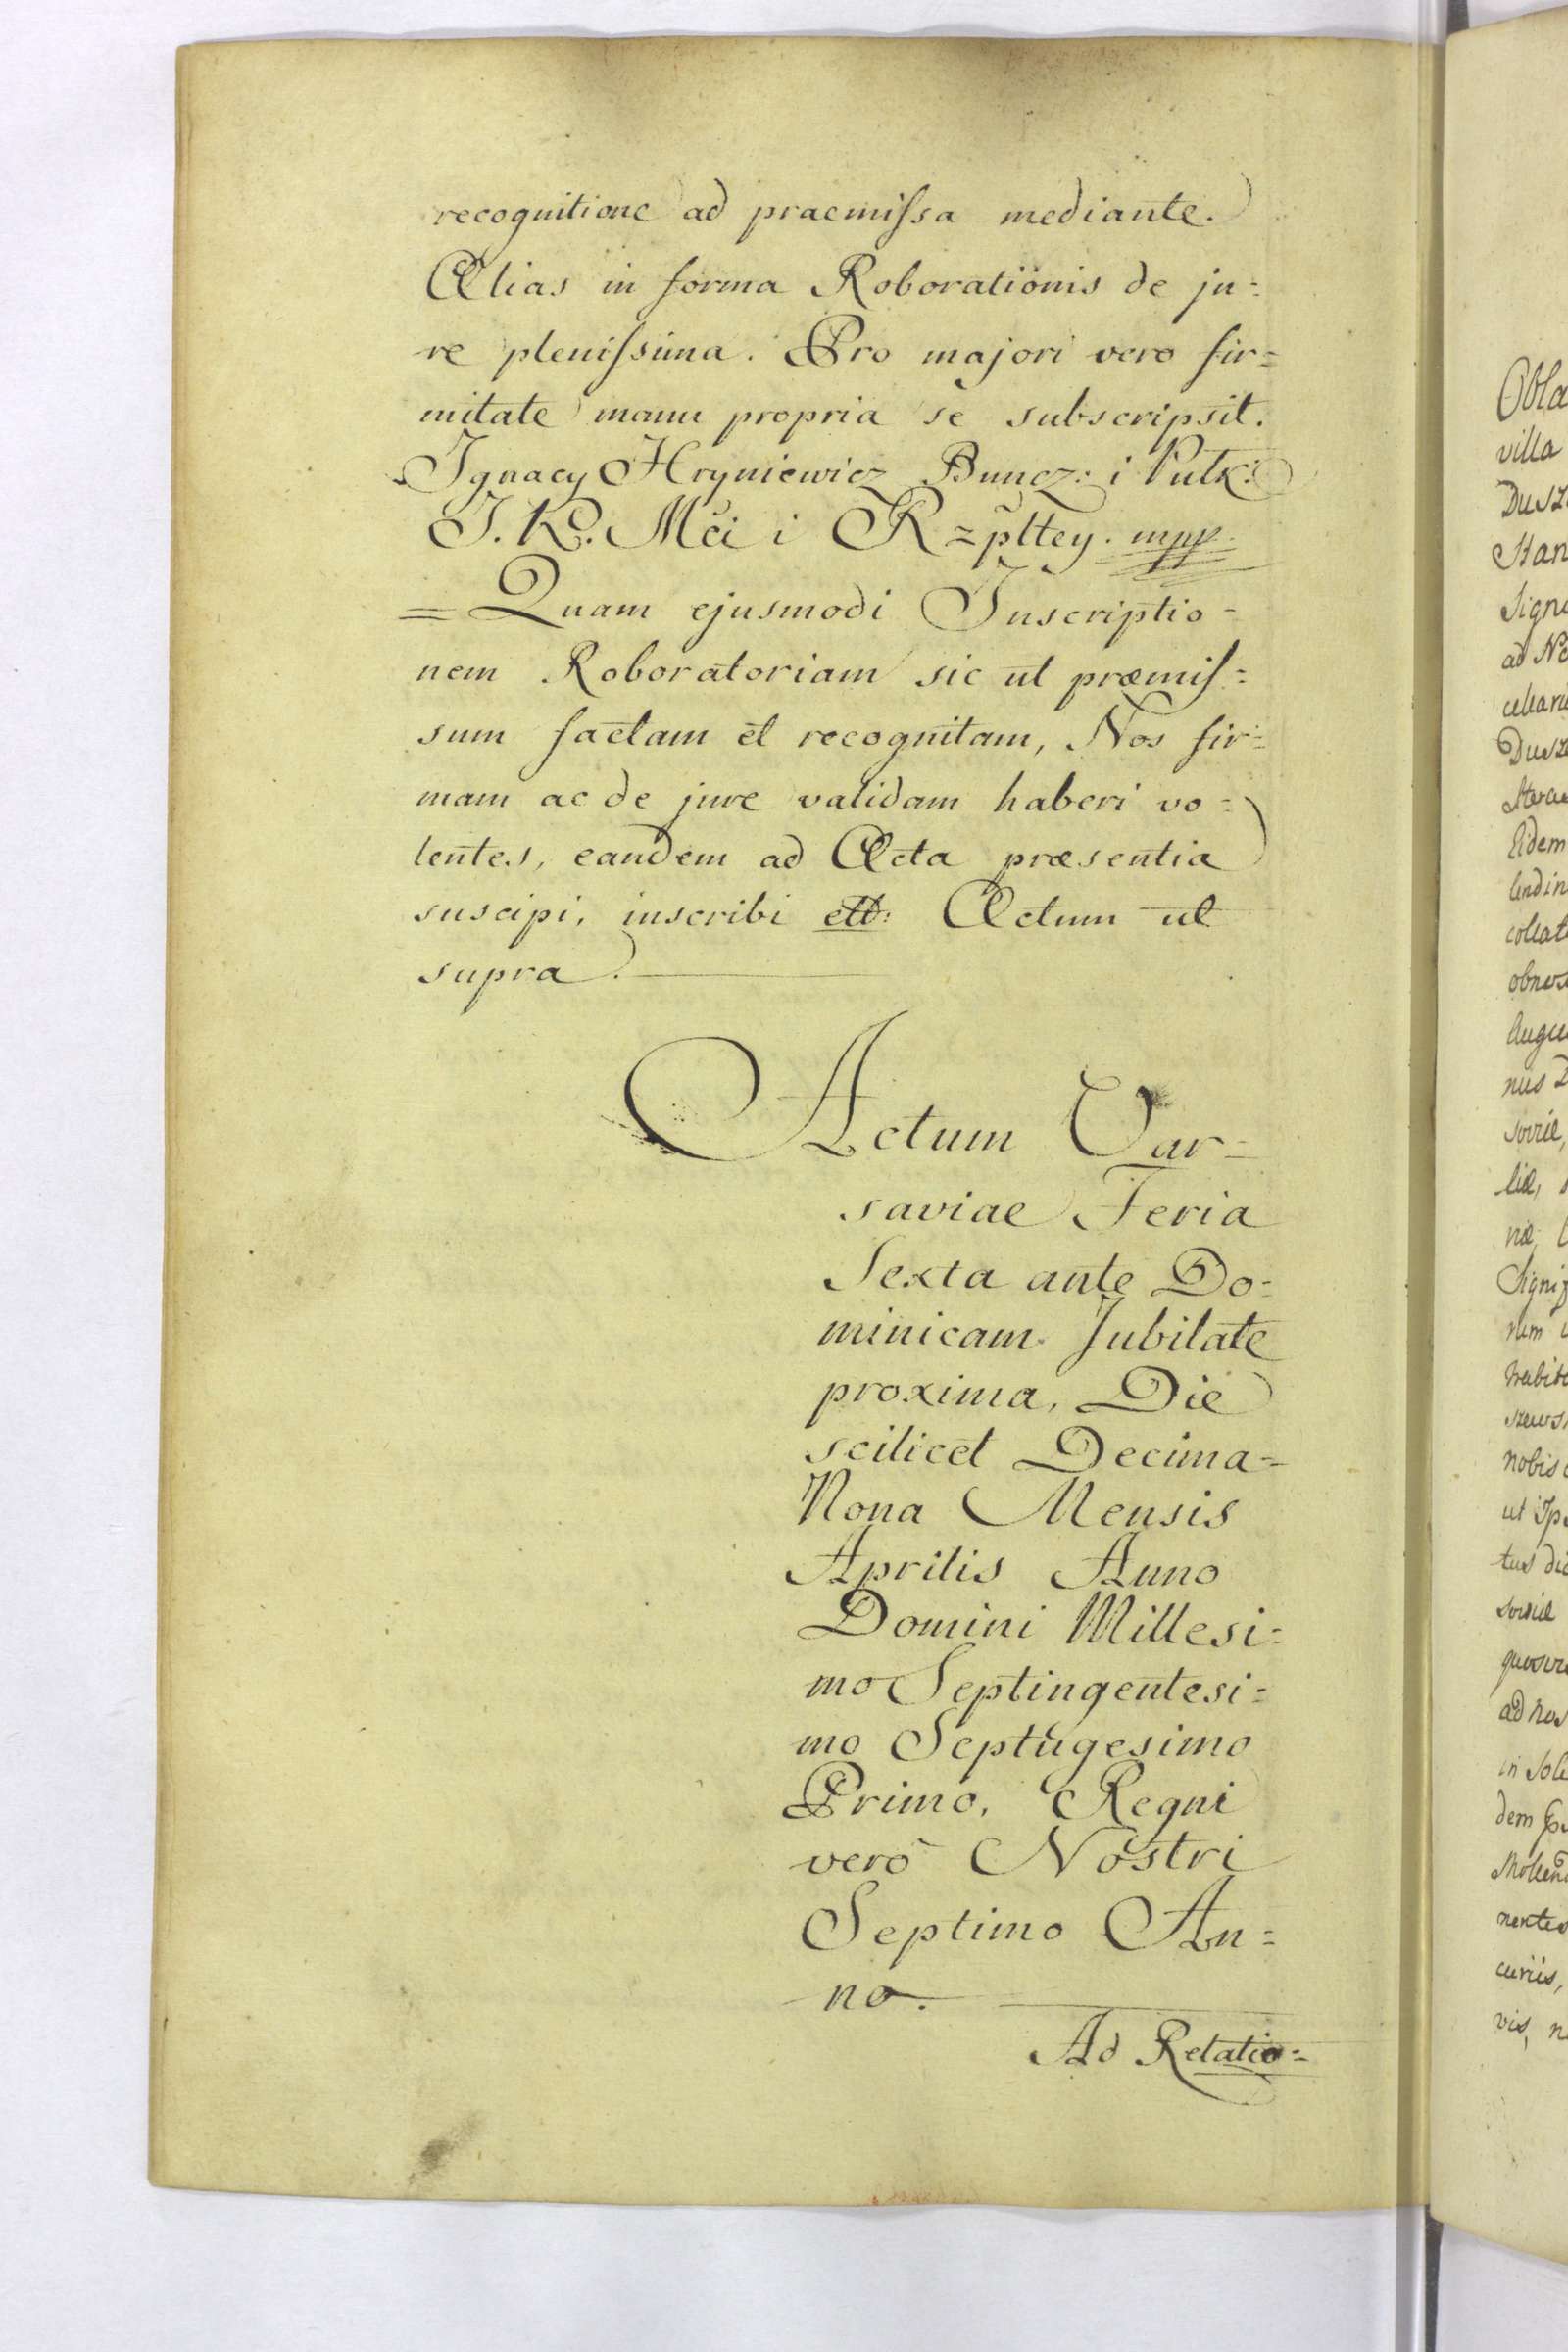 recognitione ad praemiſsa mediante.
Alias in forma Roborationis de ju=
re pleniſsima. Pro majori vero fir=
mitate manu propria se subscripsit.
Ignacy Hryniewicz Buncz: i Pułk:
J. K. Mci i Rzpltey. mpp.
= Quam ejusmodi Inscriptio=
nem Roboratoriam sic ut præmiſ=
sum factam et recognitam, Nos fir=
mam ac de jure validam haberi vo=
lentes, eandem ad Acta præsentia
suscipi, inscribi ett: Actum ut
supra.
Actum Var=
saviae Feria
Sexta ante Do=
minicam Jubilate
proxima, Die
scilicet Decima=
Nona Mensis
Aprilis Anno
Domini Millesi=
mo Septingentesi=
mo Septugesimo
Primo, Regni
vero Nostri
Septimo An=
no.
Ad Relatio=
Obla
villa
Dusz
Stan
Sign
ad No
Dusz
Eidem
collat
Augu
nus D
liæ,
næ,
Signif
num
nobis
ut Ips
ad nos
in Sole
dem
vis, n